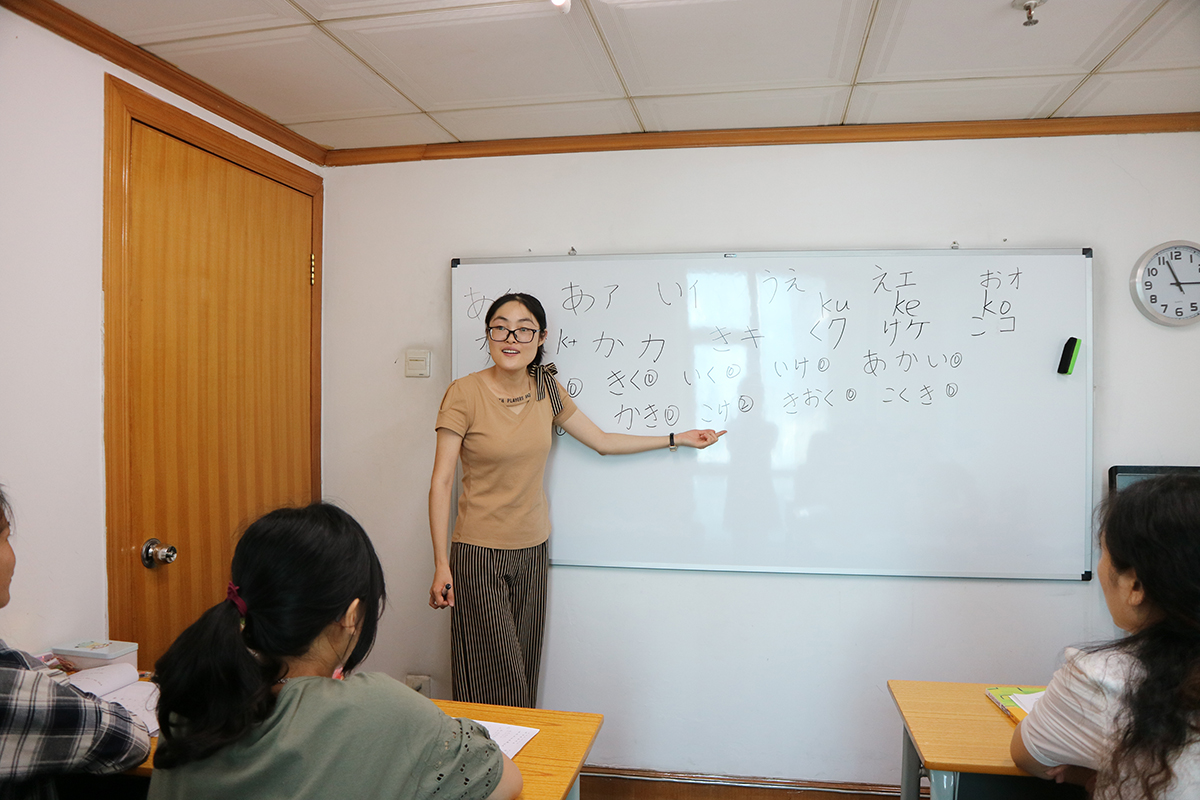 あ あア いイ うえ えエ おオ
ku ke ko
k+ かカ きキ くク けケ こコ
⓪ きく⓪ いく⓪ いけ⓪ あかい⓪
かき⓪ こけ② きおく⓪ こくき⓪
12 11 10 9 8 7 6 5